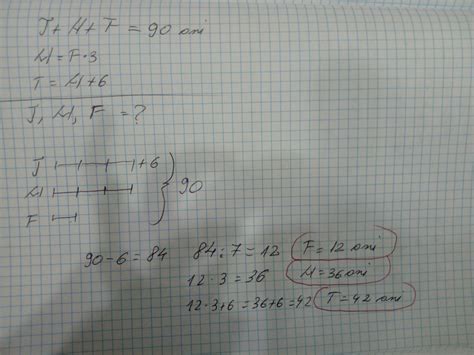 T + M + F = 90 ani
M = F·3
T = M+6
T, M, F = ?
T +6
M
F
90
90-6=84
84:7=12 F=12 ani
12·3=36 M=36 ani
12·3+6=36+6=42 T=42 ani